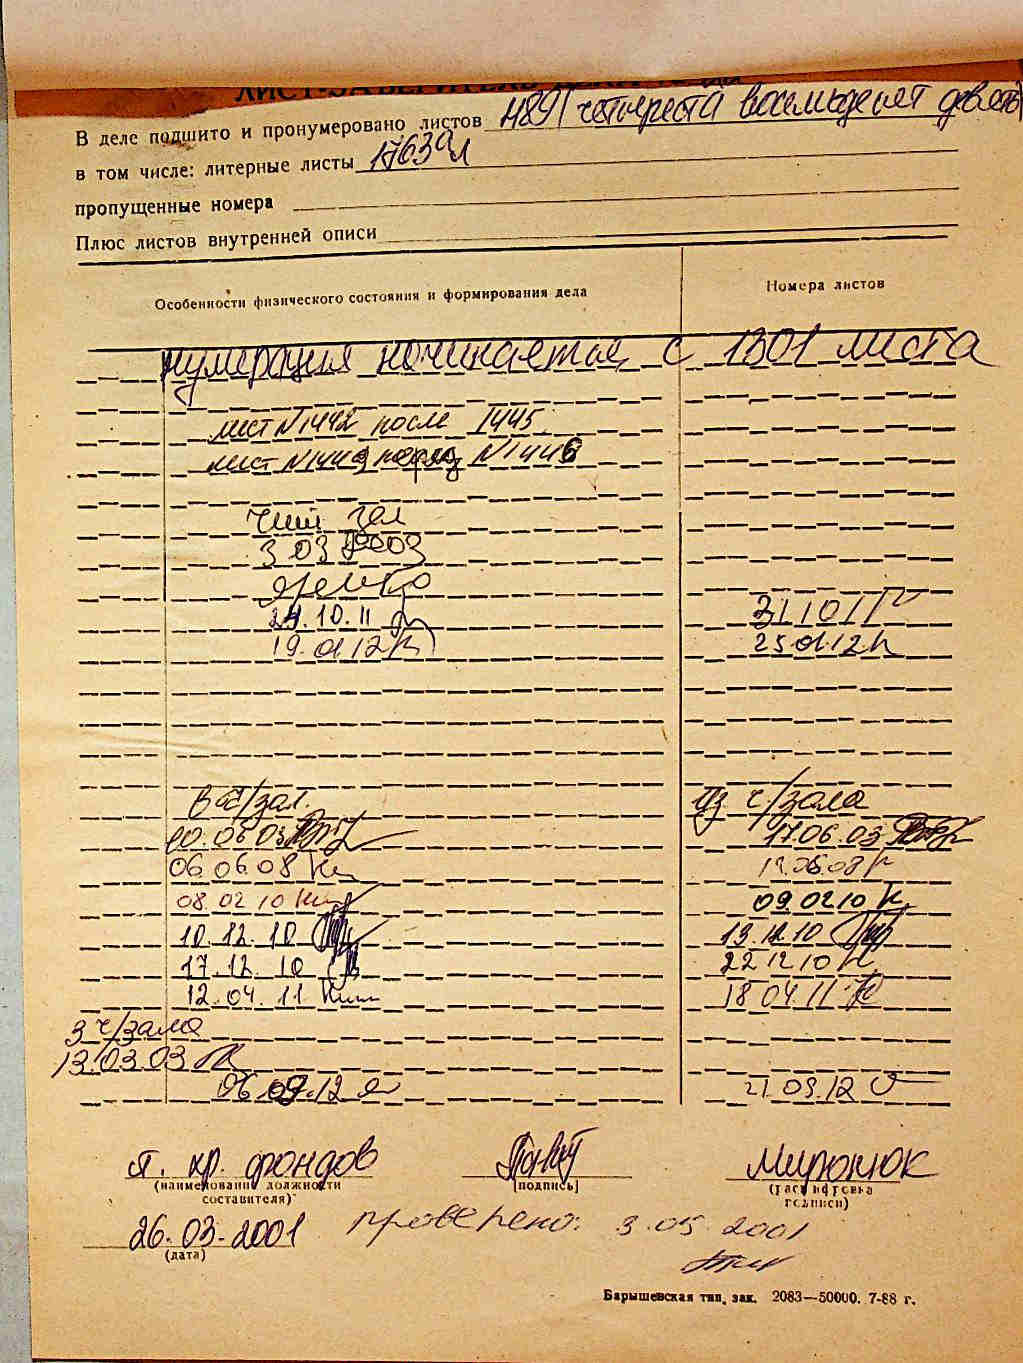 ЛИСТ-ЗАВЕРИТЕЛЬ
В деле подшито и пронумеровано листов 489 (четыреста восемьдесят девять)
в том числе: литерные листы 1763а л
пропущенные номера
Плюс листов внутренней описи
Особенности физического состояния и формирования дела Номера листов
нумерация начинается с 1301 листа
лист N1442 после 1445.
лист N1449 перед N1446
Чит зал
3 03 2003
24.10.11 31 10 11
19.01 12 25 01.12
В ч/зал. Из ч/зала
10.06 03 17.06.03
06.06.08 17.06.08
08 02 10 09 02 10
10.12.10 13.12.10
17.12.10 22 12 10
12.04.11 18 04 11
З ч/зала
13.03.03
06.09.12 21.09.12
п. хр. фондов Миронюк
(наименовани должности (подпись) (расшифровка
составителя) подписи)
26.03.2001 проверено: 3.05.2001
(дата)
Барышевская тип. зак. 2083—50000. 7-88 г.